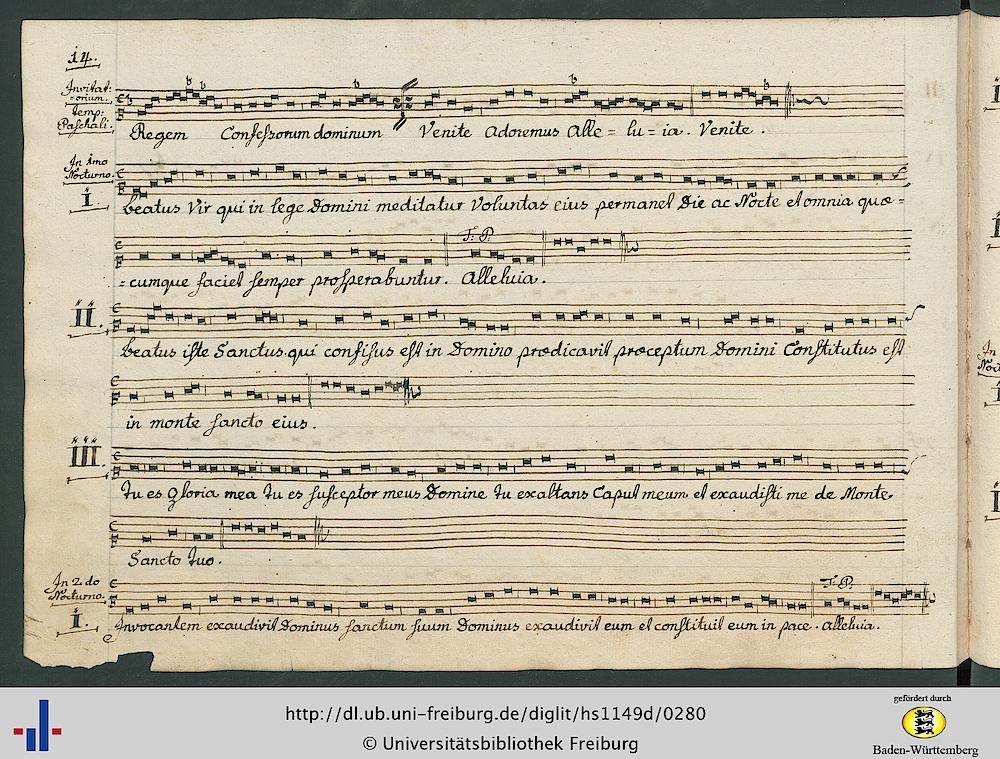 14.
Invitat:
=orium.
Temp:
Paschali.
Regem Confessorum dominum Venite Adoremus Alle = lu = ia. Venite.
In 1mo
Nocturno.
I.
beatus Vir qui in lege Domini meditatur Voluntas eius permanet Die ac Nocte et omnia quæ=
T: P.
=cumque faciet semper prosperabuntur. Alleluia.
II.
beatus iste Sanctus qui confisus est in Domino prædicavit præceptum Domini Constitutus est
in monte sancto eius.
III.
Tu es Gloria mea Tu es susceptor meus Domine Tu exaltans Caput meum et exaudisti me de Monte
Sancto Tuo.
In 2.do
Nocturno.
T: P.
I.
Invocantem exaudivit Dominus sanctum suum Dominus exaudivit eum et constituit eum in pace. Alleluia.
http://dl.ub.uni-freiburg.de/diglit/hs1149d/0280
© Universitätsbibliothek Freiburg
gefördert durch
Baden-Württemberg